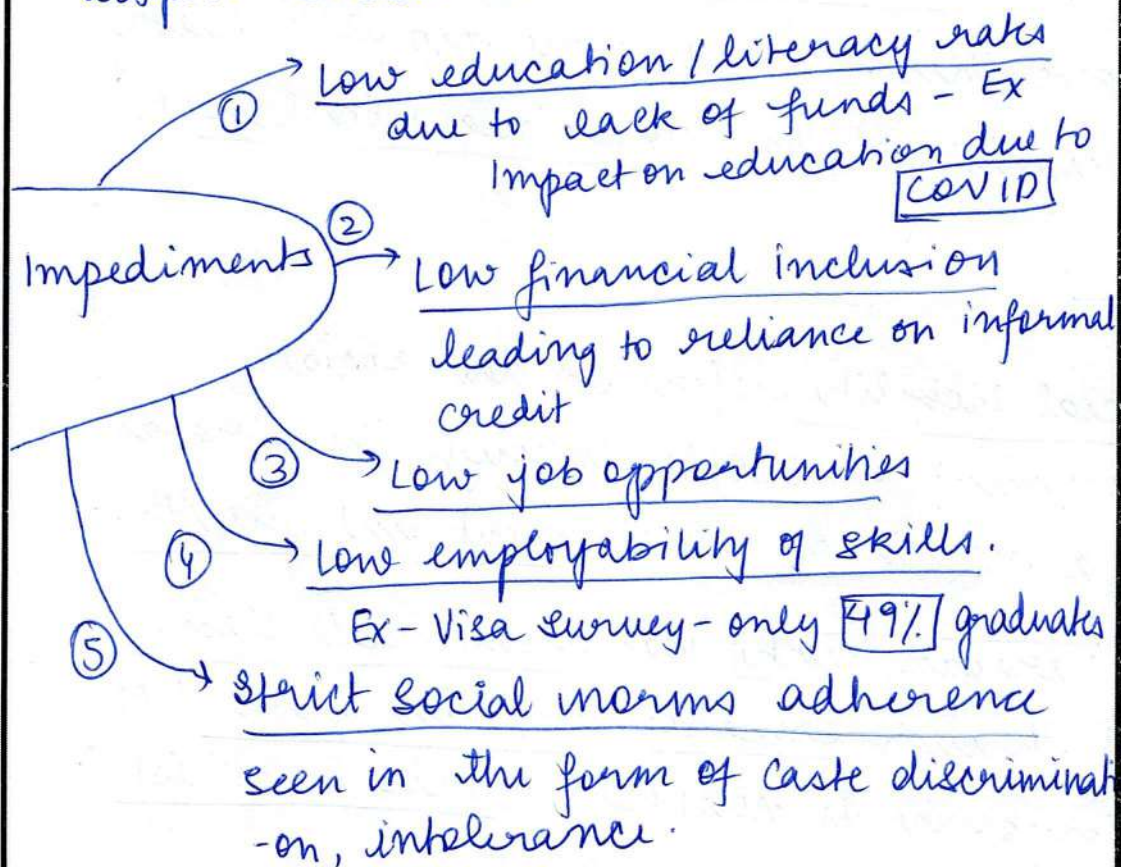 ① Low education / literacy rates
due to lack of funds - Ex
Impact on education due to
COVID
Impediments
② Low financial inclusion
leading to reliance on informal
credit
③ Low job opportunities
④ Low employability of skills.
Ex - Visa Survey - only 49% graduates
⑤ Strict social norms adherence
seen in the form of caste discriminati
-on, intolerance.